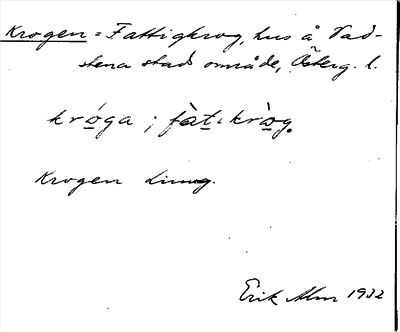 Krogen = Fattigkrog, hus å Vad-
stena stads område, Österg. l.
kró̲ga ; fàt̲ıkrò̲g.
Krogen Ljung.
Erik Alm 1932